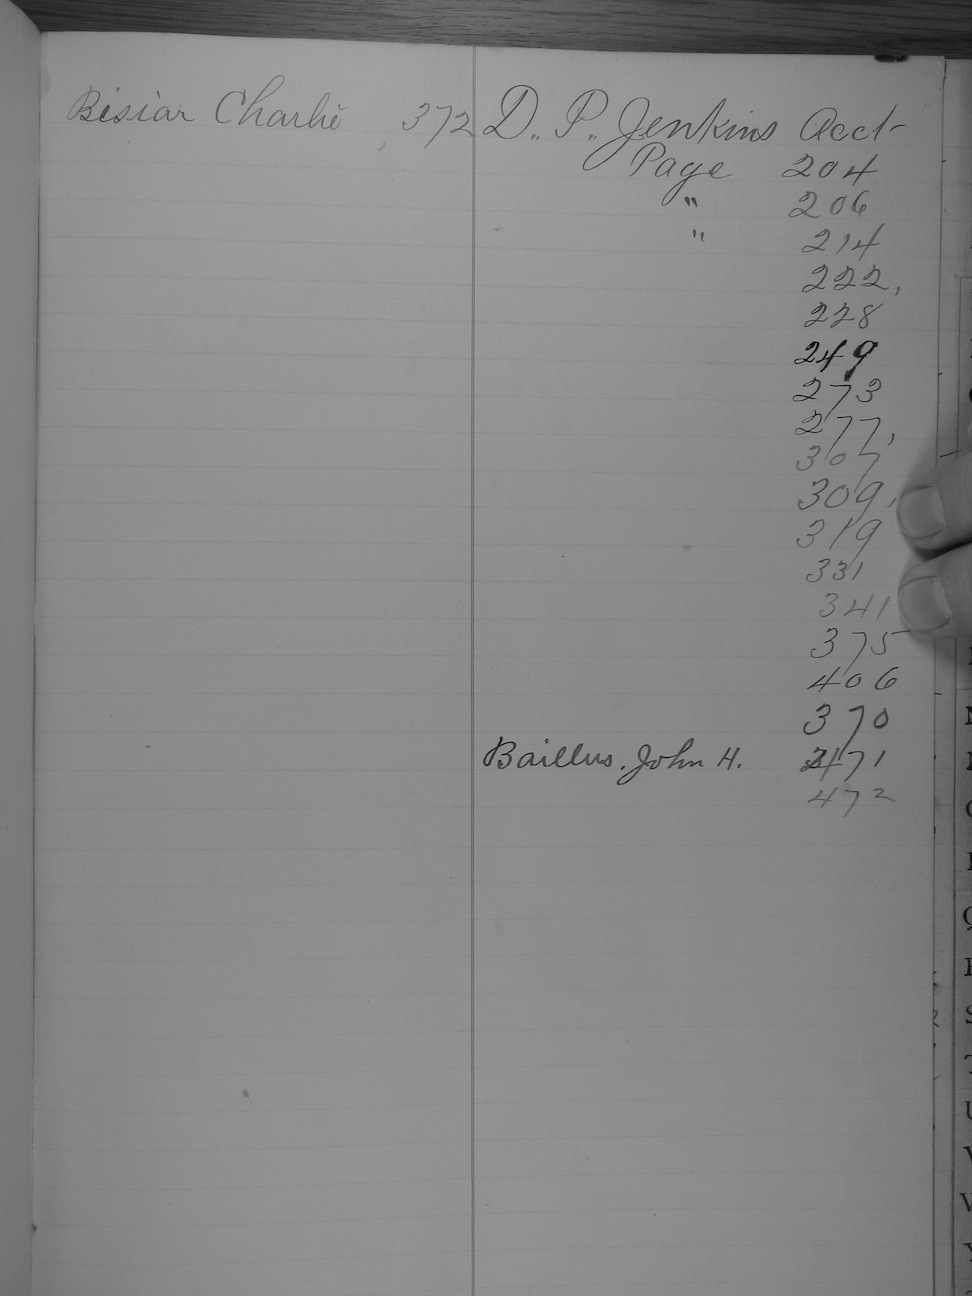 Bisiar Charlie 372
D. P. Jenkins Acct
Page 204
" 206
" 214
222,
228
249
273
277,
307
309,
319
331
341
375
406
370
Baillus, John H. 471
472